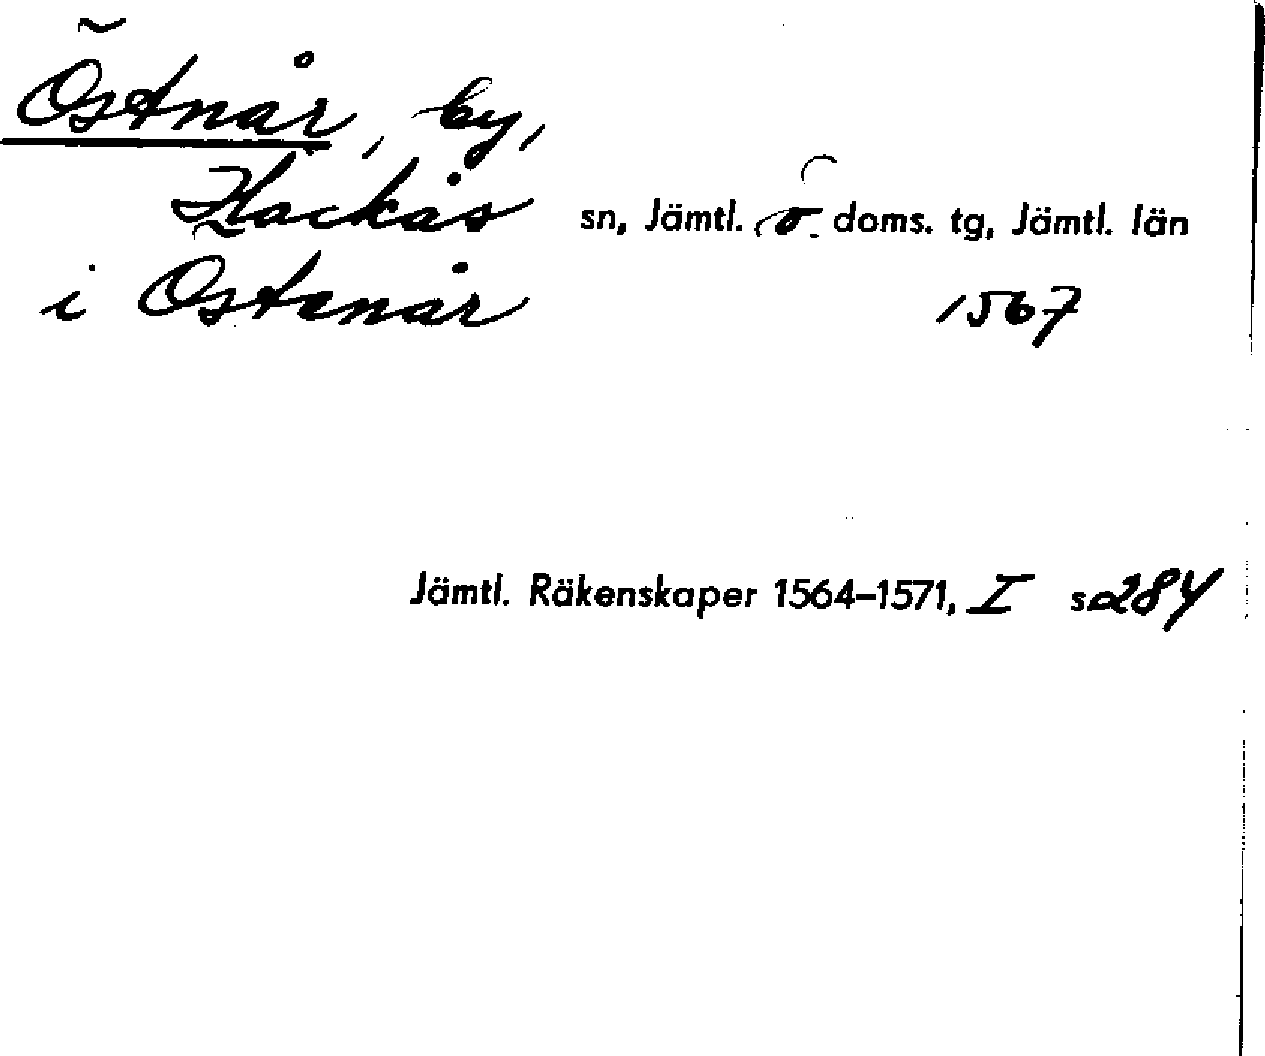 Östnår, by,
Hackås sn, Jämtl. ö. doms. tg, Jämtl. län
i Ostanår 1567
Jämtl. Räkenskaper 1564–1571, I s 284